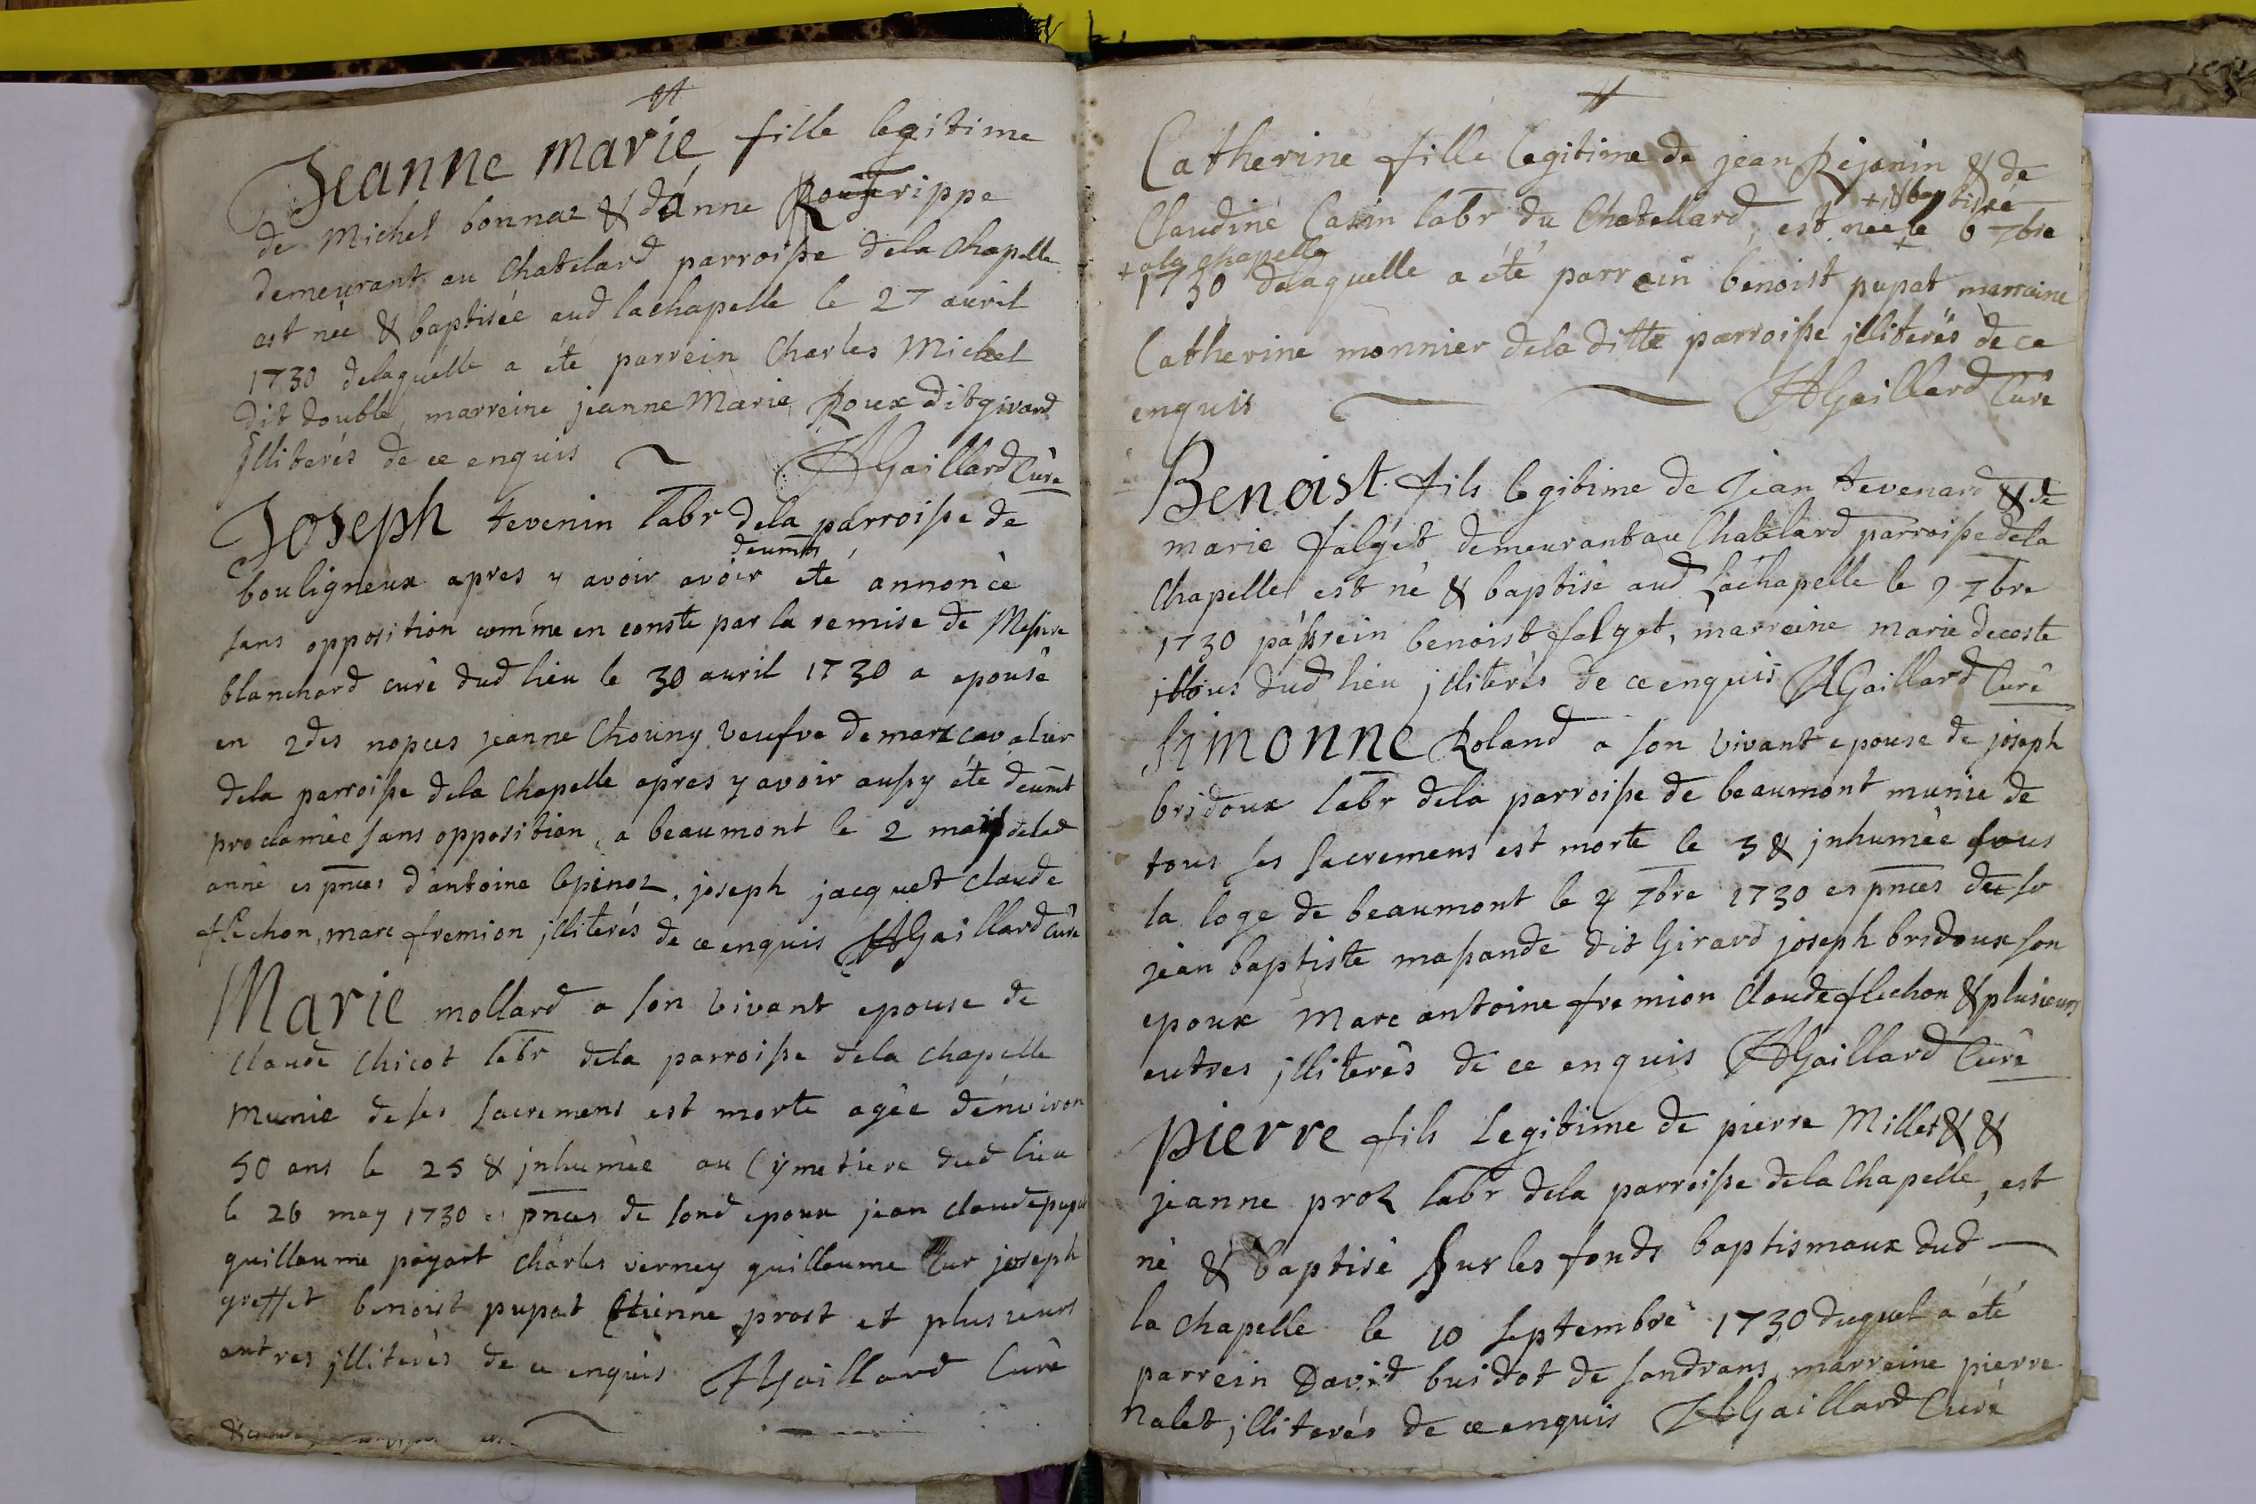 Jeanne marie fille legitime
de Michel bonnaz & d'anne Rougerippe
demeurant au Chatelard parroisse dela chapelle
est née & baptisée aud lachapelle le 27 avril
1730 delaquelle a été parrein Charles Michel
dit double, marreine jeanne Marie Roux dit givard
jlliterés de ce enquis AGaillard Curé
Joseph tevenin labr dela parroisse de
deumt
bouligneux apres y avoir avoir eté annoncè
sans opposition comme en conste par la remise de Messire
blanchard curè dud lieu le 30 avril 1730 a epousè
en 2des nopces jeanne Chouny veufve de marc cavalier
dela parroisse dela Chapelle apres y avoir aussy été deumt
proclamèe sans opposition, a beaumont le 2 may delad
annè es pnces d'antoine lepinoz, joseph jacquet claude
flechon, marc fremion jlliterés de ce enquis AGaillard Curé
Marie mollard a son vivant epouse de
claude Chicot labr dela parroisse dela chapelle
munie de ses sacremens est morte agèe d'environ
50 ans le 25 & jnhumèe au Cymetiere dud lieu
le 26 may 1730 es pnces de sond epoux jean claude pupat
guillaume payart charles verney guillaume Cur joseph
greffet benoist pupat Etienne prost et plusieurs
autres jlliterès de ce enquis AGaillard Curè
Catherine fille legitime de jean Rejanin & de
+ & baptisèe
Claudine Casin labr du Chatellard, est nee le 6 7bre
+ ala chapelle
1730 delaquelle a été parrein benoist pupat marraine
Catherine monnier dela ditte parroisse jlliterés de ce
enquis AGaillard Curé
Benoist fils legitime de Jean tevenard & de
marie falget demeurant au Chatelard parroisse dela
Chapelle est né & baptisè aud Lachapelle le 9 7bre
1730 parrein benoist falget, marreine marie decoste
tous dud lieu jlliterés de ce enquis AGaillard Curè
Simonne Roland a son vivant epouse de joseph
bridoux labr dela parroisse de beaumont munie de
tous ses sacremens est morte le 3 & jnhumèe sous
la loge de beaumont le 4 7bre 1730 es pnces de sr
jean baptiste massande dit Girard joseph bridoux son
epoux Marc antoine fremion Claude flechon & plusieurs
autres jlliterès de ce enquis AGaillard Curè
pierre fils Legitime de pierre Millet & &
jeanne proz labr dela parroisse dela Chapelle, est
né & baptisé sur les fonds baptismaux dud
la chapelle le 10 septembre 1730 duquel a été
parrein David buidot de sandrans, marreine pierre
nalet, jlliterés de ce enquis AGaillard Curé